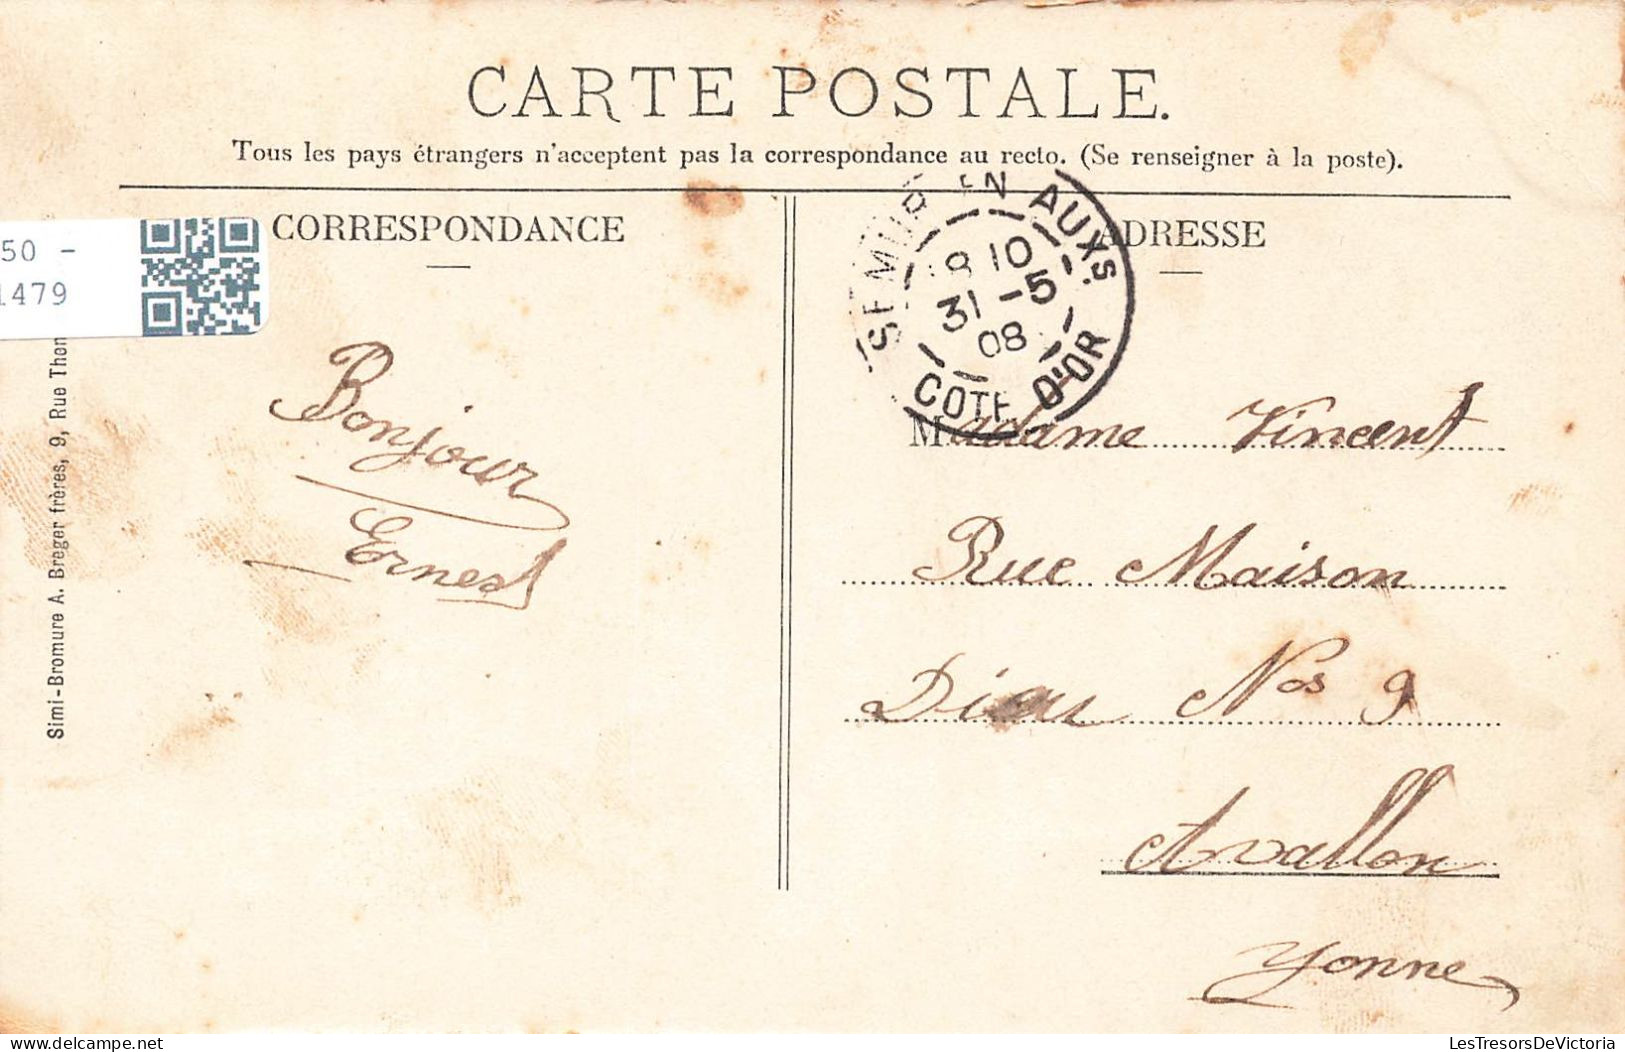 CARTE POSTALE.
Tous les pays étrangers n'acceptent pas la correspondance au recto. (Se renseigner à la poste).
CORRESPONDANCE
ADRESSE
50 -
1479
Simi-Bromure A. Breger frères, 9, Rue Thé
SEMUR EN AUXS.
8 10
31 -5
08
COTE D'OR
Bonjour
Ernest
Madame Vincent
Rue Maison
Dieu Nos 9
Avallon
Yonne
Delcampe.net
LesTresorsDeVictoria